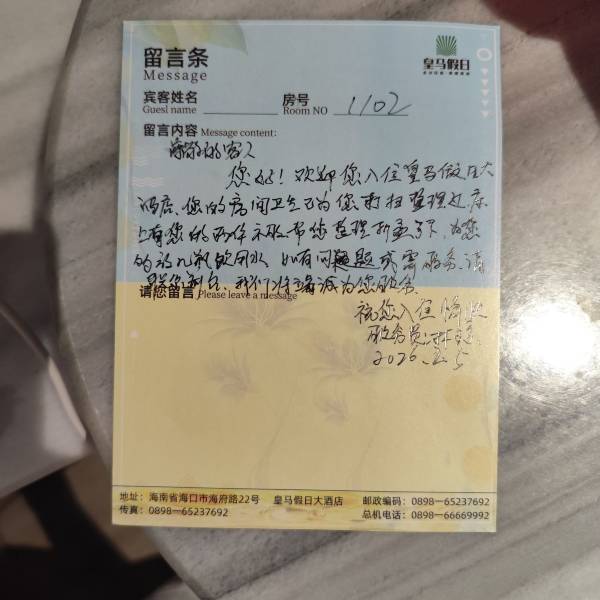 留言条
Message
皇马假日
宾客姓名
Guest name
房号
Room NO 1102
留言内容 Message content:
尊敬的客人
您好！欢迎您入住皇马假日大
酒店、您的房间卫生已为您打扫整理过、床
上有您的两件衣服帮您整理折叠了下、为您
饮用水、如有问题或需服务、请
我们将竭诚为您服务
请您留言 Please leave a message
祝您入住愉快
服务员:
2026.2.5
地址：海南省海口市海府路22号 皇马假日大酒店 邮政编码：0898—65237692
传真：0898—65237692 总机电话：0898—66669992